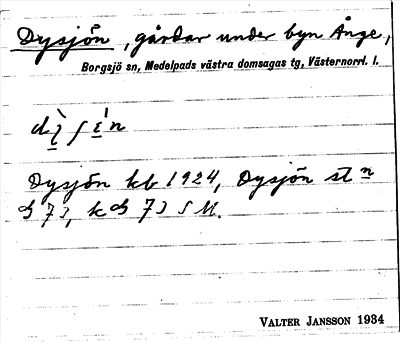 Dysjön, gårdar under byn Ånge,
Borgsjö sn, Medelpads västra domsagas tg, Västernorrl. l.
Dysjön kb 1924, Dysjön st n
73, k 73 S M.
VALTER JANSSON 1934